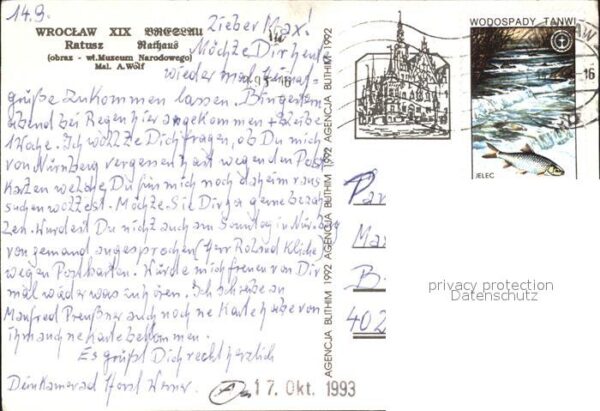 14.9.
Lieber Max!
WROCŁAW XIX BRESLAU
Ratusz Rathaus
(obraz - wł. Muzeum Narodowego)
Mal. A. Wölf
Möchte Dir heute
wieder mal
grüße zukommen lassen. Bin gestern
abend bei Regen hier angekommen + bleibe
1 Woche. Ich wollte Dich fragen, ob Du mich
von Nürnberg vergessen hast wegen den Post
Karten welche Du für mich noch daheim raus
suchen wolltest. Möchte Sie Dir ja gerne bezah
len. Wurdest Du nicht auch am Sonntag in Nürnberg
von jemand angesprochen Herr Roland Kliche
wegen Postkarten. Würde mich freuen von Dir
mal wieder was zu hören. Ich schreibe an
Manfred Preußner auch noch ne Karte habe von
ihm auch ne Karte bekommen.
Es grüßt Dich recht herzlich
Dein Kamerad Horst Werner.
17. Okt. 1993
AGENCJA BUTHIM 1992 AGENCJA BUTHIM 1992 AGENCJA BUTHIM 1992
93-16
WODOSPADY TANWI
16
JELEC
Ma
B
402
privacy protection
Datenschutz